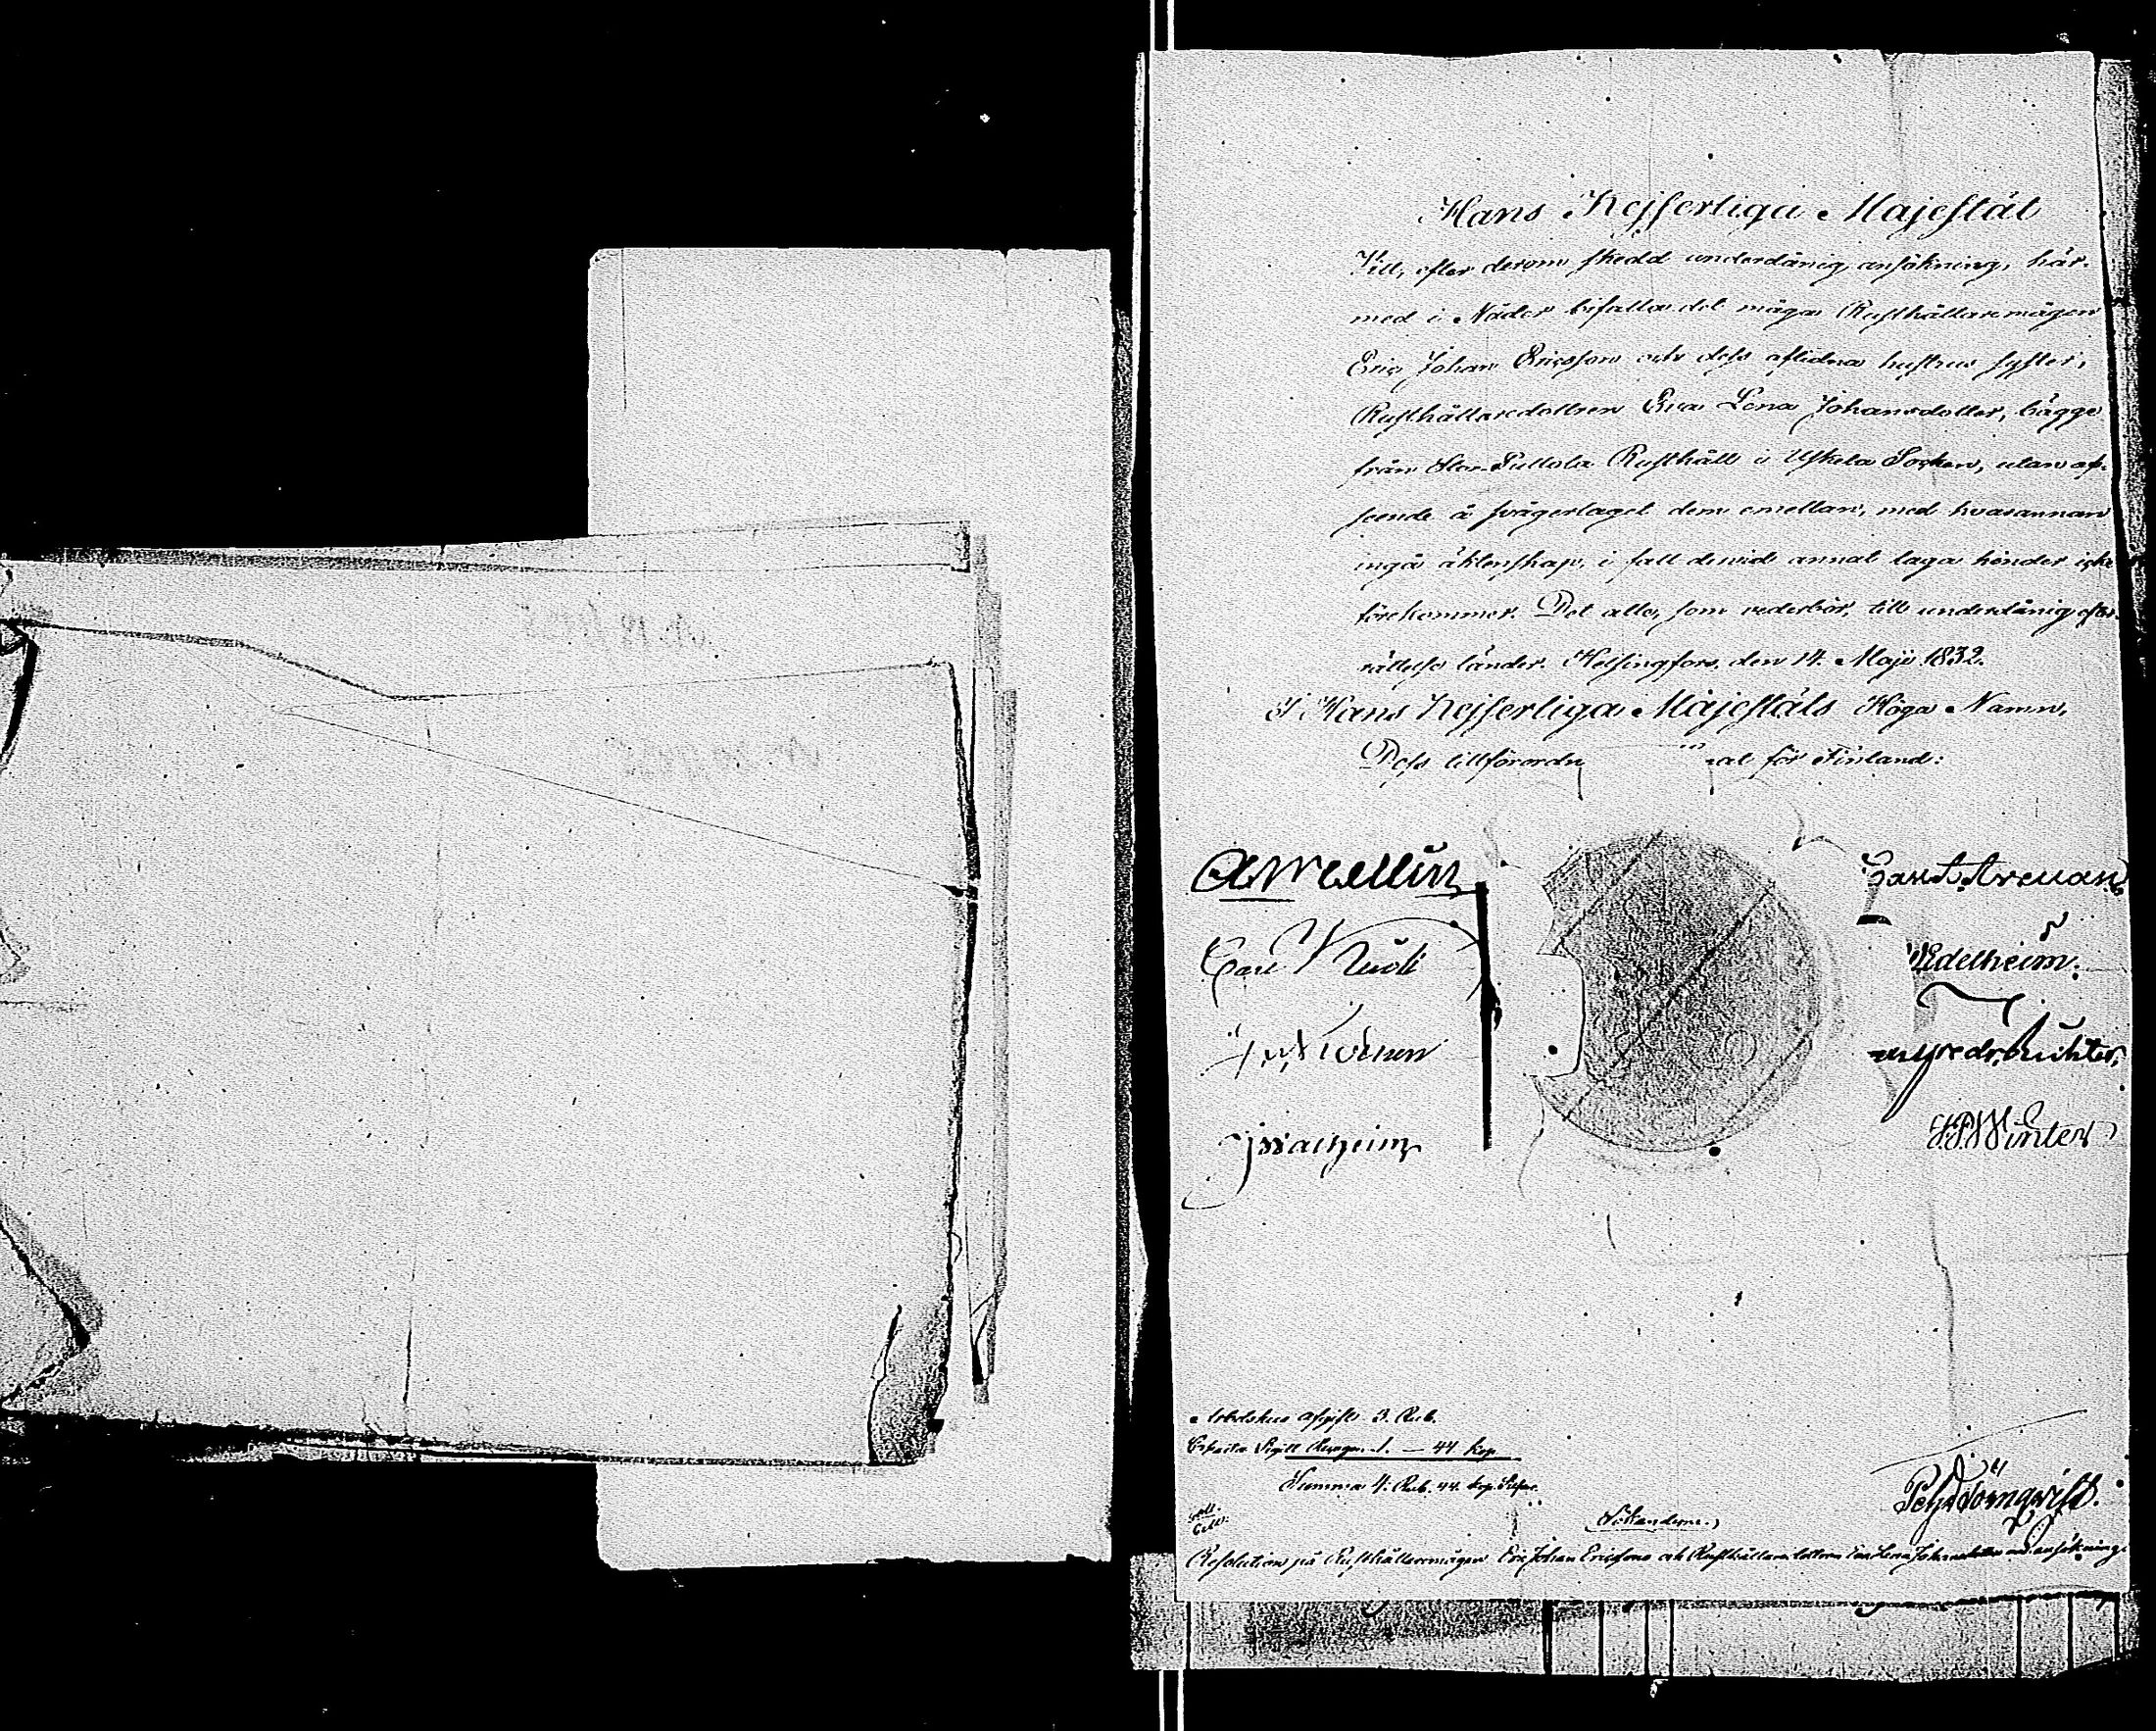 Hans Kejserliga Majestät
Vill, efter derom skedd underdånig ansökning, här-
med i Nåder bifalla det måga Rusthållaremågen
Eric Johan Ericsson och dess aflidna hustrus syster,
Rusthållaredottren Eva Lena Johansdotter, bägge
från Stor Pullola Rusthåll i Uskela Socken, utan af-
seende å svägerlaget dem emellan, med hvarannan
ingå äktenskap, i fall dervid annat laga hinder icke
förekommer. Det alle, som vederbör, till underdånig efter-
rättelse länder. Helsingfors, den 14. Maji 1832.
I Hans Kejserliga Majestäts Höga Namn,
Dess tillförordn för Finland:
Carl
Edelheim.
Richter,
Walheim
Winter
afgift 3. Rub.
Sigill 1. — 44 kop
Summa 4. Rub. 44. kop. Silfver.
Sökanderne.
Resolution på Rusthållaremågen Eric Johan Ericssons och Rusthållaredottren Eva Lena Johansdotters ansökning.